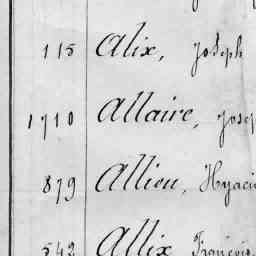 115 Alix, Joseph
1710 Allaire,
879 Allieu,
542 Allix François